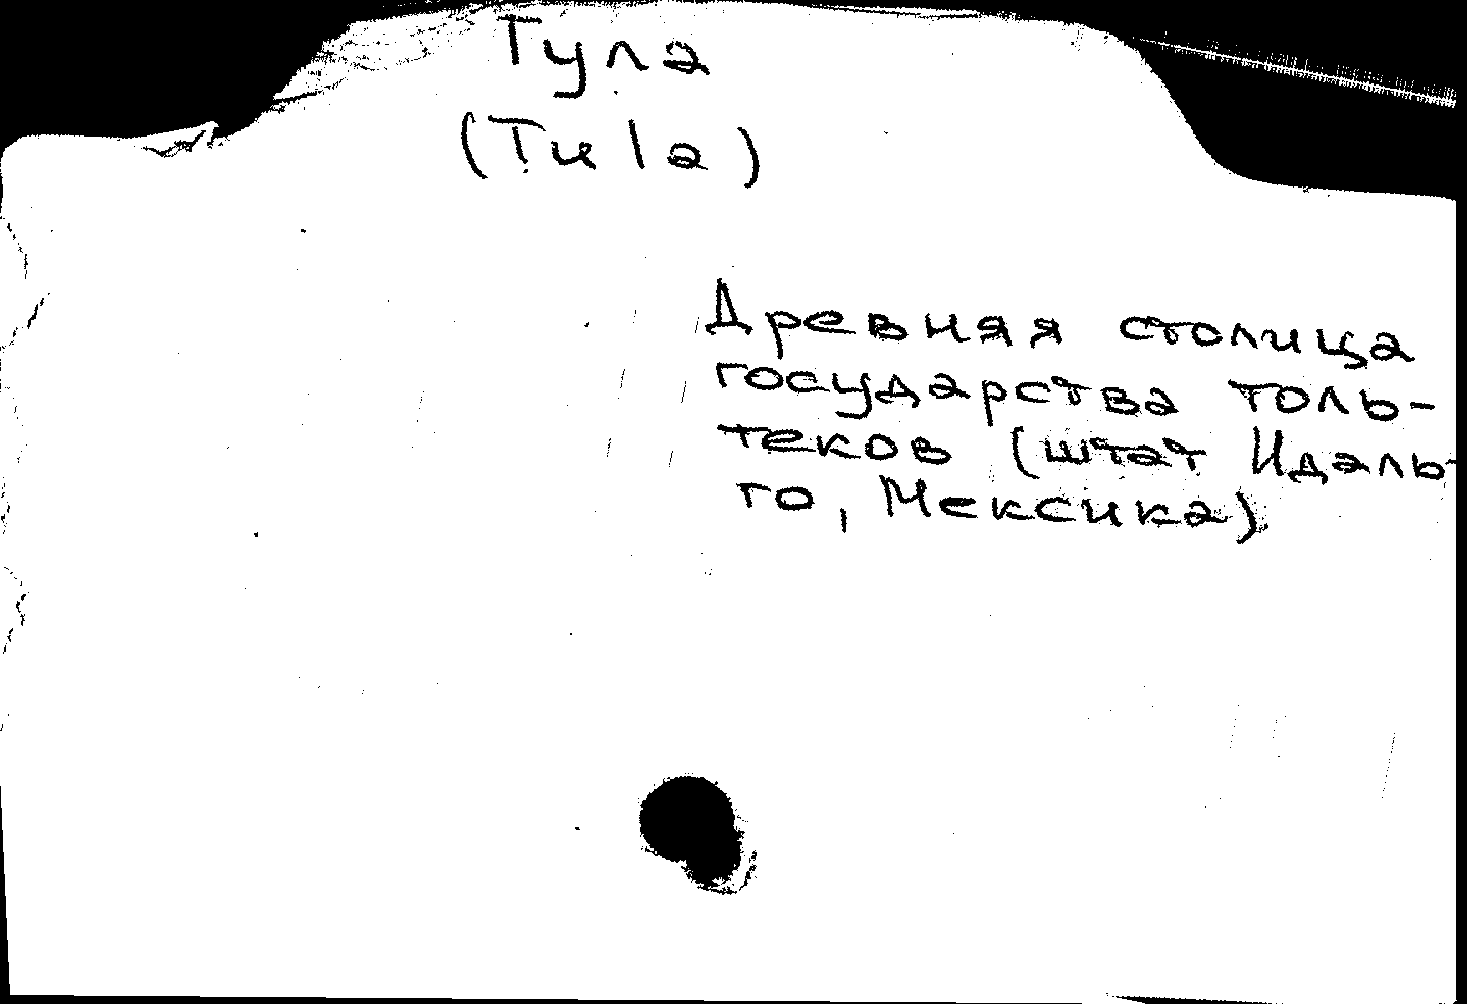 Тула
(Tula)
Древняя столица
государства толь-
теков (штат Идаль-
го, Мексика)